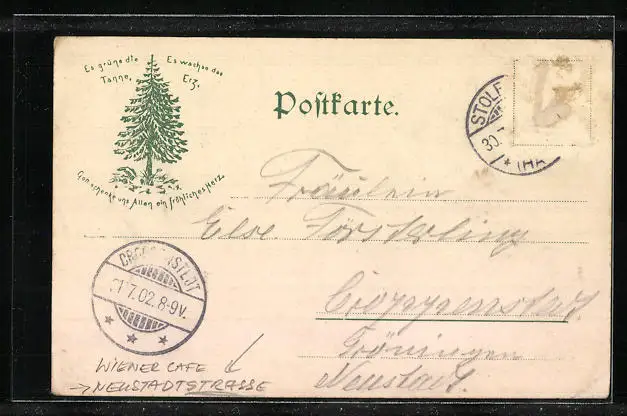 Es grüne die
Tanne,
Es wachse das
Erz,
Gott schenke uns Allen ein fröhliches Herz.
Postkarte.
STOL
30.
Fräulein
Else Försterling
Croppenstedt
Gröningen
Neustadt.
31.7.02.8-9V.
WIENER CAFE
→NEUSTADTSTRASSE